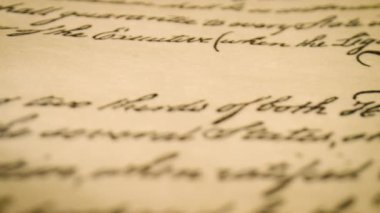 shall guarantee to every State
of the Executive (when the Leg
two thirds of both Ho
the several States,
when ratified